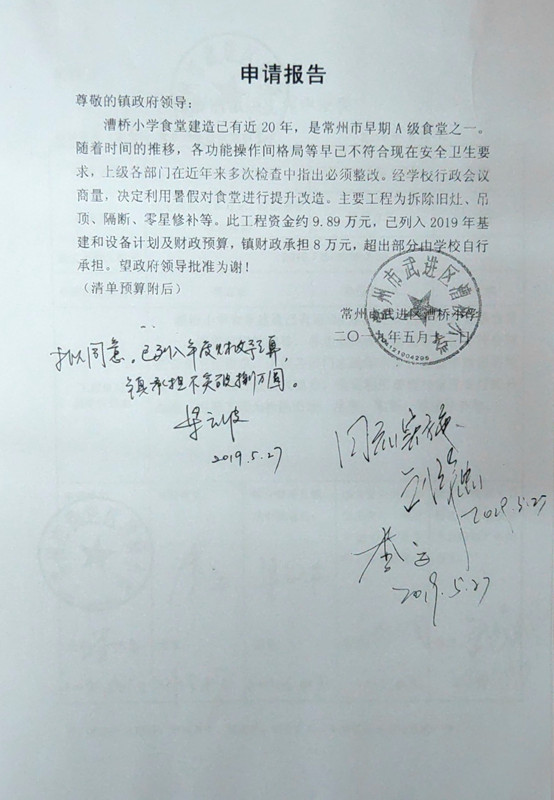 申请报告
尊敬的镇政府领导：
漕桥小学食堂建造已有近 20 年，是常州市早期 A 级食堂之一。
随着时间的推移，各功能操作间格局等早已不符合现在安全卫生要
求，上级各部门在近年来多次检查中指出必须整改。经学校行政会议
商量，决定利用暑假对食堂进行提升改造。主要工程为拆除旧灶、吊
顶、隔断、零星修补等。此工程资金约 9.89 万元，已列入 2019 年基
建和设备计划及财政预算，镇财政承担 8 万元，超出部分由学校自行
承担。望政府领导批准为谢！
（清单预算附后）
常州市武进区漕桥小学
二〇一九年五月十二日
常州市武进区漕桥小学
拟同意。已列入年度财政预算，
镇承担不突破捌万圆。
2019.5.27
同意实施
2019.5.27
李云
2019.5.27